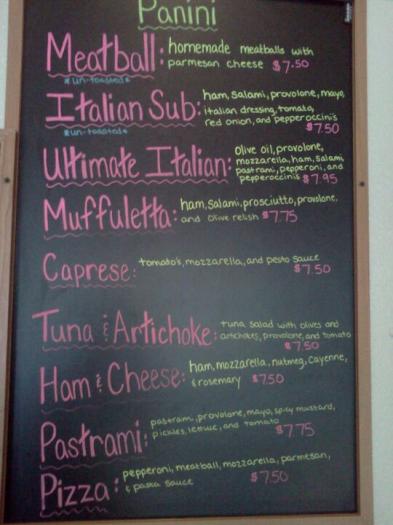 Panini
Meatball: homemade meatballs with
parmesan cheese $7.50
*un-toasted*
Italian Sub: ham, salami, provolone, mayo,
italian dressing, tomato,
red onion, and pepperoccini's
$7.50
*un-toasted*
Ultimate Italian: olive oil, provolone,
mozzarella, ham, salami
pastrami, pepperoni, and
pepperoccinis $7.95
Muffuletta: ham, salami, prosciutto, provolone,
and olive relish $7.75
Caprese: tomato's, mozzarella, and pesto sauce
$7.50
Tuna & Artichoke: tuna salad with olives and
artichokes, provolone, and tomato
$7.50
Ham & Cheese: ham, mozzarella, nutmeg, cayenne,
& rosemary $7.50
Pastrami: pastrami, provolone, mayo, spicy mustard,
pickles, lettuce, and tomato
$7.75
Pizza: pepperoni, meatball, mozzarella, parmesan,
& pasta sauce $7.50